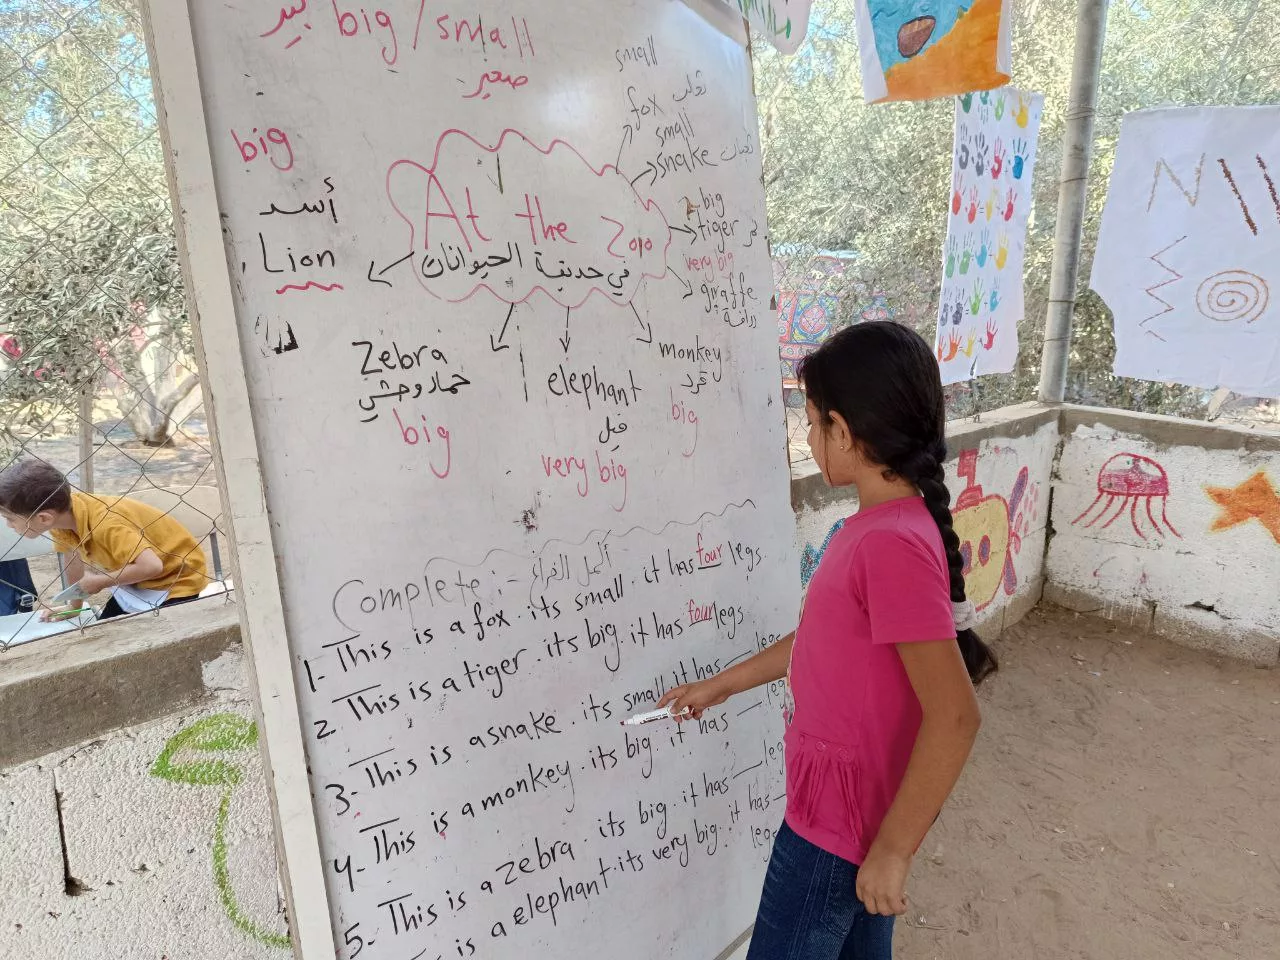 كبير big / small
صغير
big
أسد
Lion
At the Zoo
في حديقة الحيوانات
small
fox ثعلب
small
snake ثعبان
big
tiger نمر
very big
giraffe
زرافة
Zebra
حمار وحشي
big
elephant
فيل
very big
monkey
قرد
big
Complete :- أكمل الفراغ
1- This is a fox. its small. it has four legs.
2- This is a tiger. its big. it has four legs.
3- This is a snake. its small. it has __ legs
4- This is a monkey. its big. it has __ leg
5- This is a zebra. its big. it has __ leg
is a elephant. its very big. it has __
legs
N